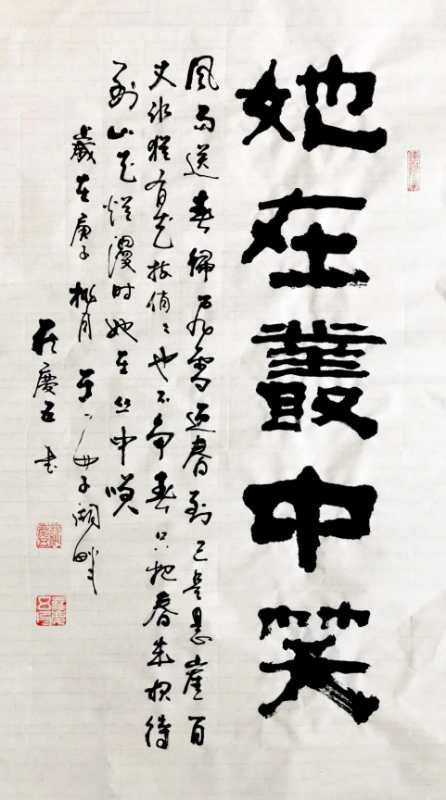 她在叢中笑
風雨送春歸飛雪迎春到已是懸崖百
丈冰猶有花枝俏俏也不爭春只把春來報待
到山花爛漫時她在丛中噗
歲在庚子桃月於西子湖畔
慶五书